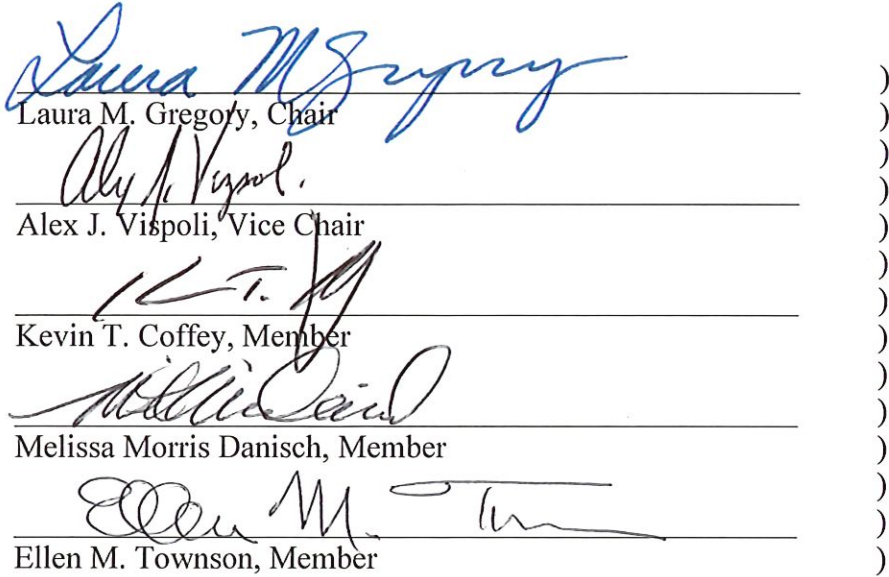 Laura M Gregory )
Laura M. Gregory, Chair )
)
Alex J. Vispoli )
Alex J. Vispoli, Vice Chair )
)
K T. )
Kevin T. Coffey, Member )
)
)
Melissa Morris Danisch, Member )
)
Ellen M. T )
Ellen M. Townson, Member )